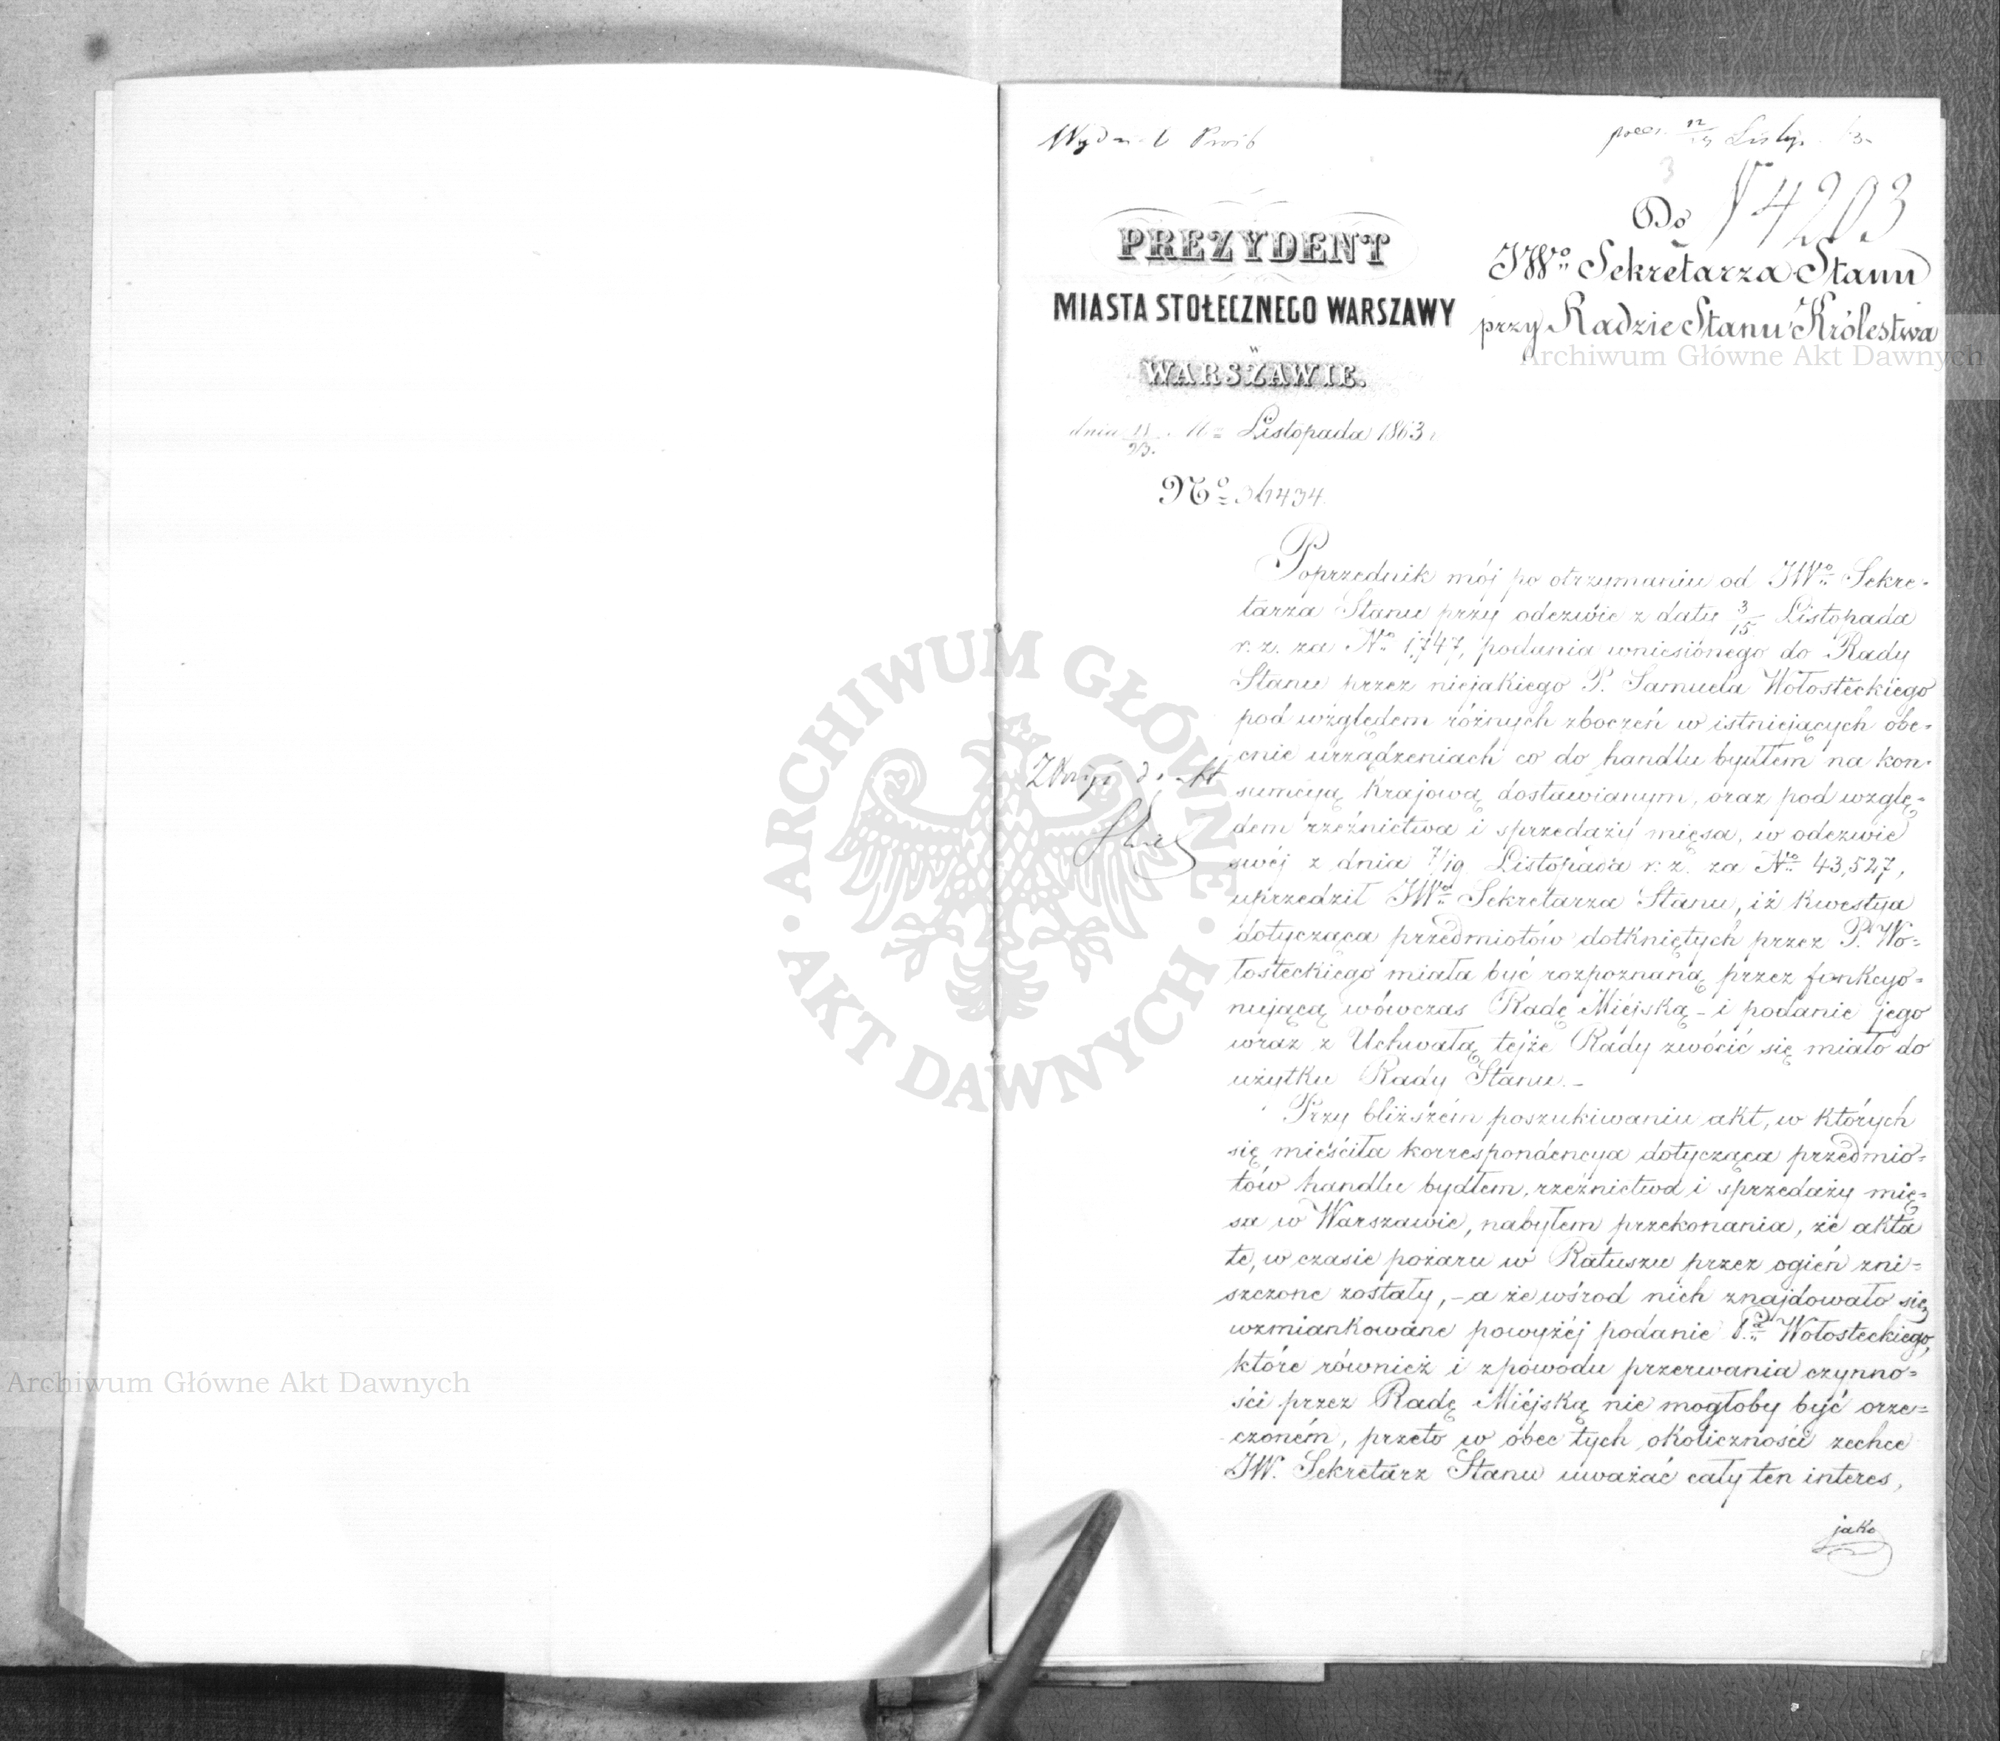 4203
Do
JWo Sekretarza Stanu
przy Radzie Stanu Królestwa
PREZYDENT
MIASTA STOŁECZNEGO WARSZAWY
w
WARSZAWIE.
dnia 11/23 Listopada 1863 r.
No
Poprzednik mój po otrzymaniu od JWo Sekre-
tarza Stanu przy odezwie z daty 3/15 Listopada
r. z. za No 1,747, podania wniesionego do Rady
Stanu przez niejakiego P. Samuela Wołosteckiego
pod względem różnych zboczeń w istniejących obe-
cnie urządzeniach co do handlu bydłem na kon-
sumcyą krajową dostawianym, oraz pod wzglę-
dem rzeźnictwa i sprzedaży mięsa, w odezwie
swéj z dnia 7/19 Listopada r. z. za No 43,527,
uprzedził JWo Sekretarza Stanu, iż kwestya
dotycząca przedmiotów dotkniętych przez P. Wo-
łosteckiego miała być rozpoznaną przez funkcyo-
nującą wówczas Radę Miejską – i podanie jego
wraz z Uchwałą tejże Rady zwócić się miało do
użytku Rady Stanu. –
Przy bliższém poszukiwaniu akt, w których
się mieściła korrespondencya dotycząca przedmio-
tów handlu bydłem, rzeźnictwa i sprzedaży mię-
sa w Warszawie, nabyłem przekonania, że akta
te, w czasie pożaru w Ratuszu przez ogień zni-
szczone zostały, – a że wśrod nich znajdowało się
wzmiankowane powyżéj podanie Pa Wołosteckiego,
które również i z powodu przerwania czynno-
ści przez Radę Miejską nie mogłoby być orze-
czoném, przeto w obec tych okoliczności zechce
JW. Sekretarz Stanu uważać cały ten interes,
jako
Archiwum Główne Akt Dawnych
ARCHIWUM GŁÓWNE
AKT DAWNYCH
Archiwum Główne Akt Dawnych